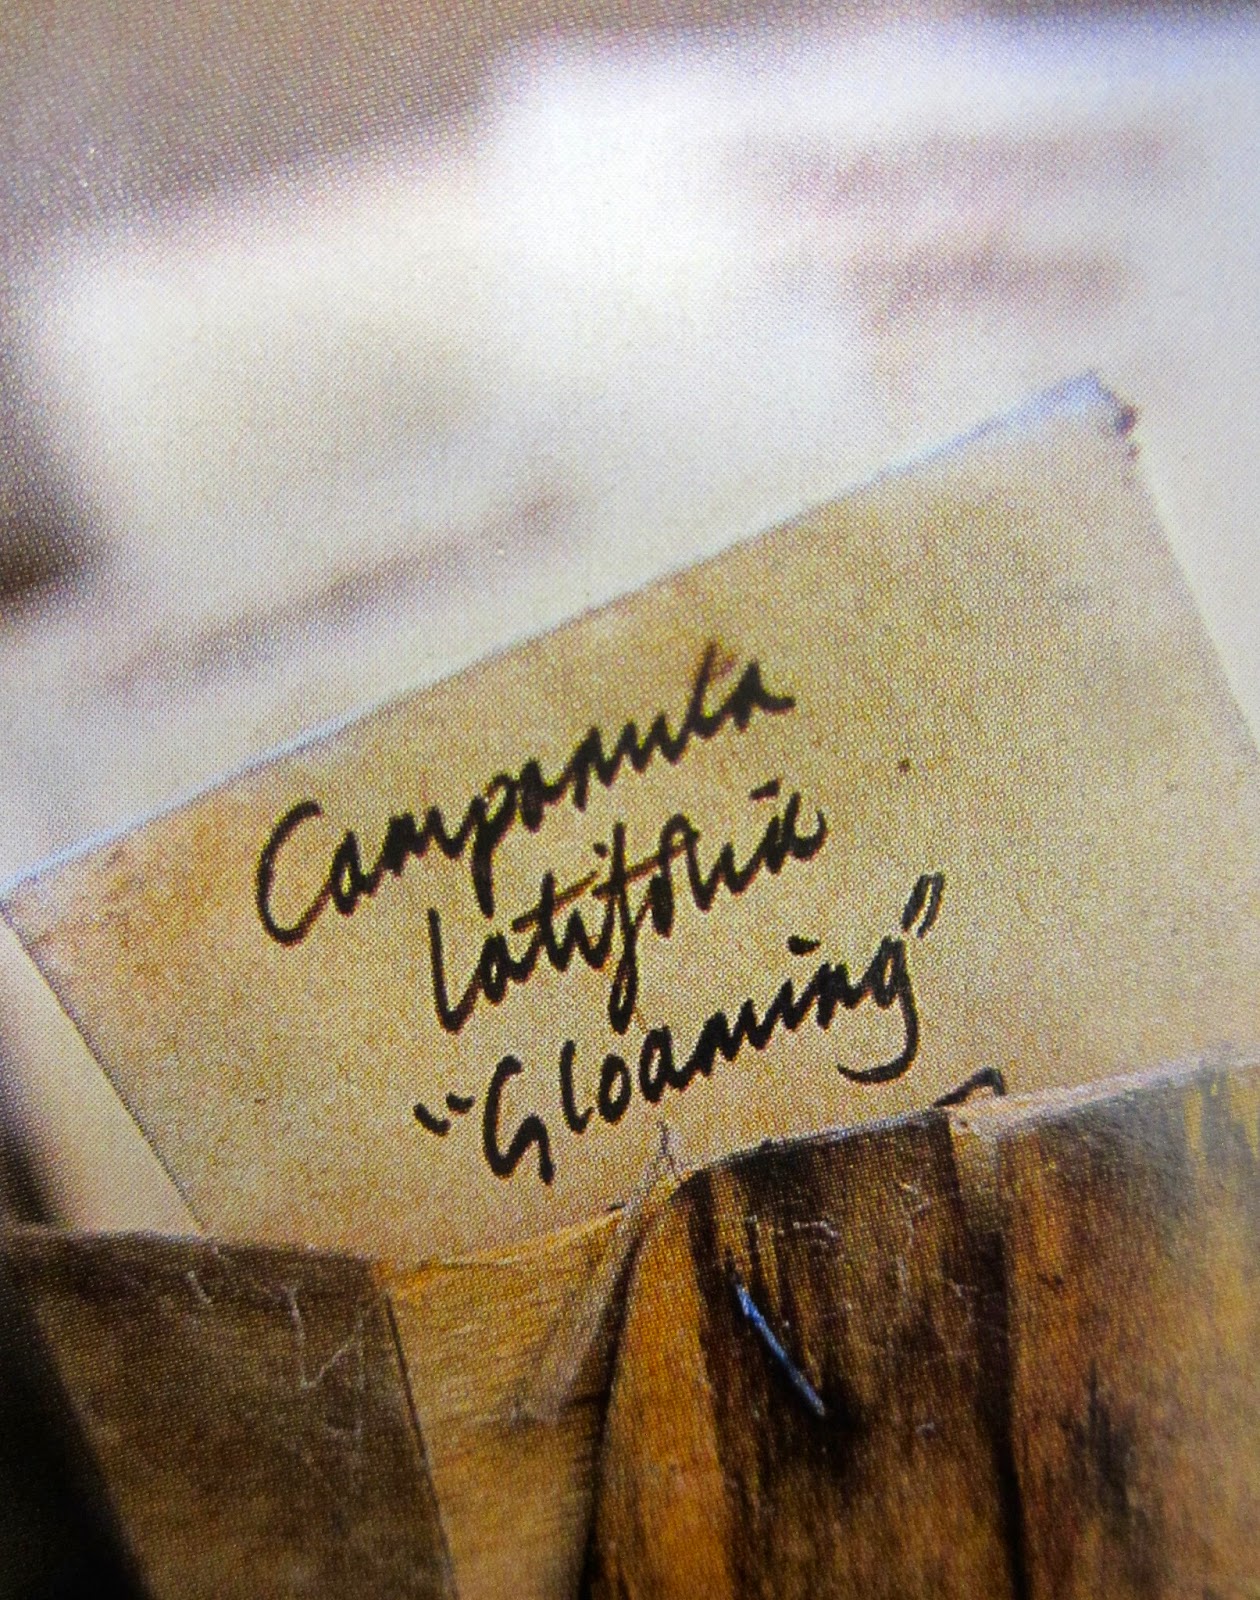 Campanula
latifolia
"Gloaming"